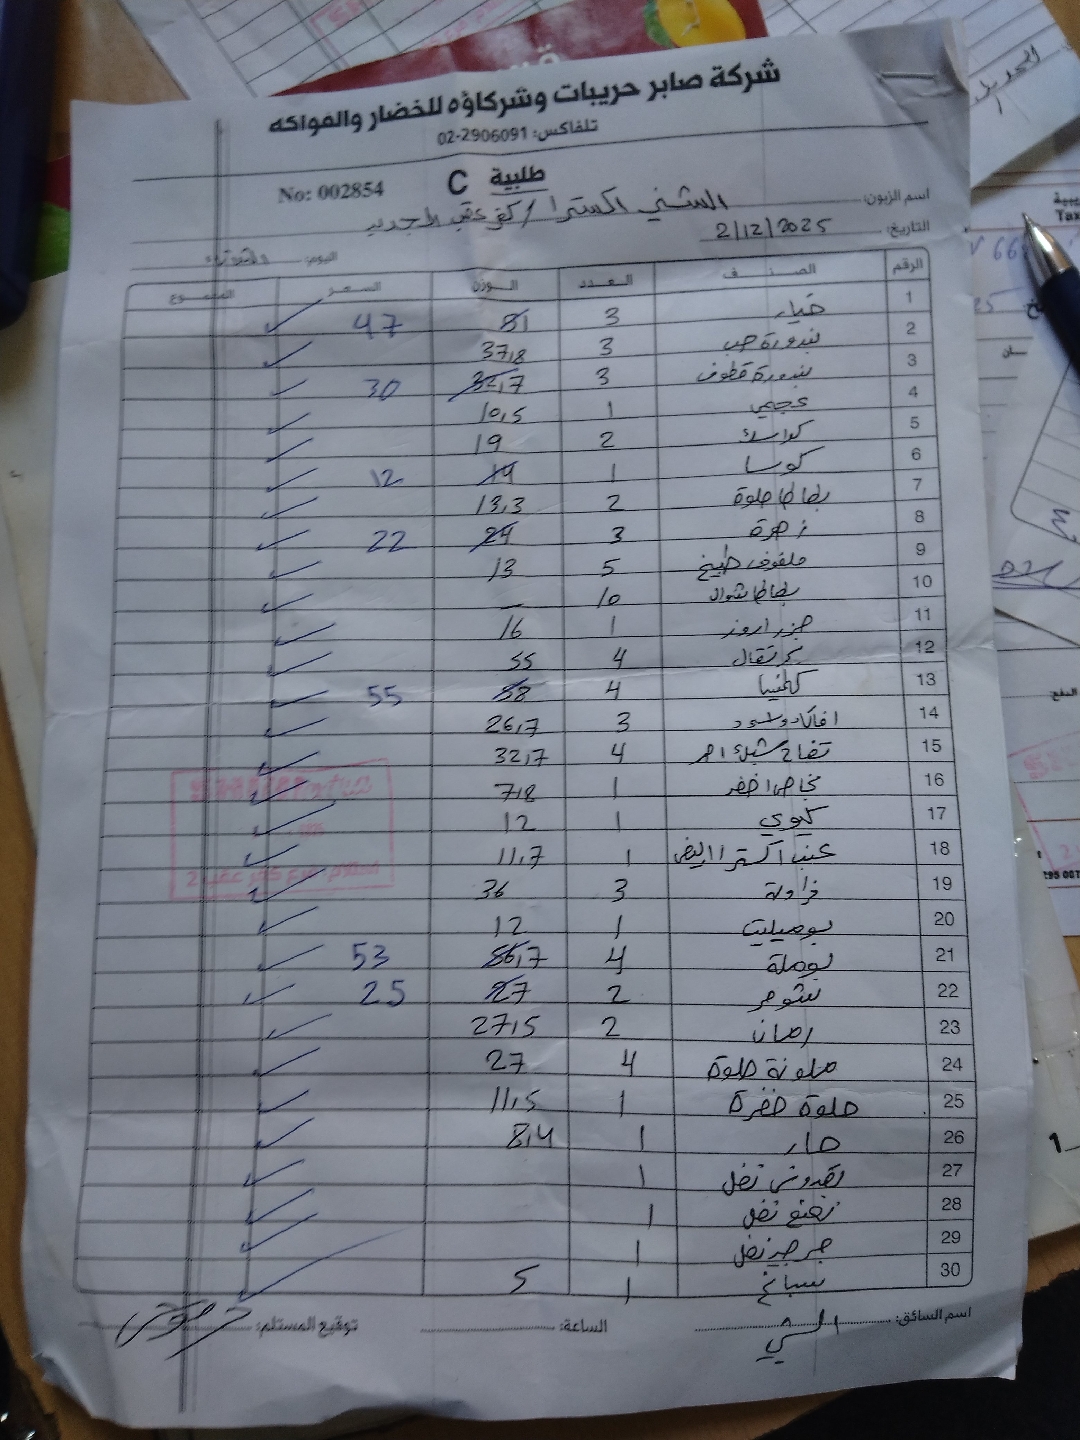 شركة صابر حريبات وشركاؤه للخضار والفواكه
تلفاكس: 02-2906091
طلبية C
No: 002854
اسم الزبون: الشني اكسترا / كفر عقب الجديد
التاريخ: 2/12/2025
اليوم: الثلاثاء
الرقم الصنف العدد الوزن السعر المجموع
1 خيار 3 51 47
2 بندورة حب 3 37,8
3 بندورة قطوف 3 32,7 30
4 عجمي 1 10,5
5 2 19
6 كوسا 1 14 12
7 بطاطا حلوة 2 13,3
8 زهرة 3 24 22
9 ملفوف طبيخ 5 13
10 بطاطا شوال 10 —
11 جزر اروز 1 16
12 برتقال 4 55
13 كلمنتينا 4 58 55
14 افاكادو اسود 3 26,7
15 تفاح احمر 4 32,7
16 نجاص اخضر 1 7,8
17 كيوي 1 12
18 عنب اكسترا ابيض 1 11,7
19 فراولة 3 36
20 بوميليت 1 12
21 بوملة 4 56,7 53
22 شومر 2 27 25
23 رمان 2 27,5
24 ملونة حلوة 4 27
25 حلوة خضرة 1 11,5
26 حار 1 8,4
27 بقدونس نخل 1
28 نعنع نخل 1
29 جرجير نخل 1
30 سبانخ 1 5
اسم السائق:
الساعة:
توقيع المستلم: